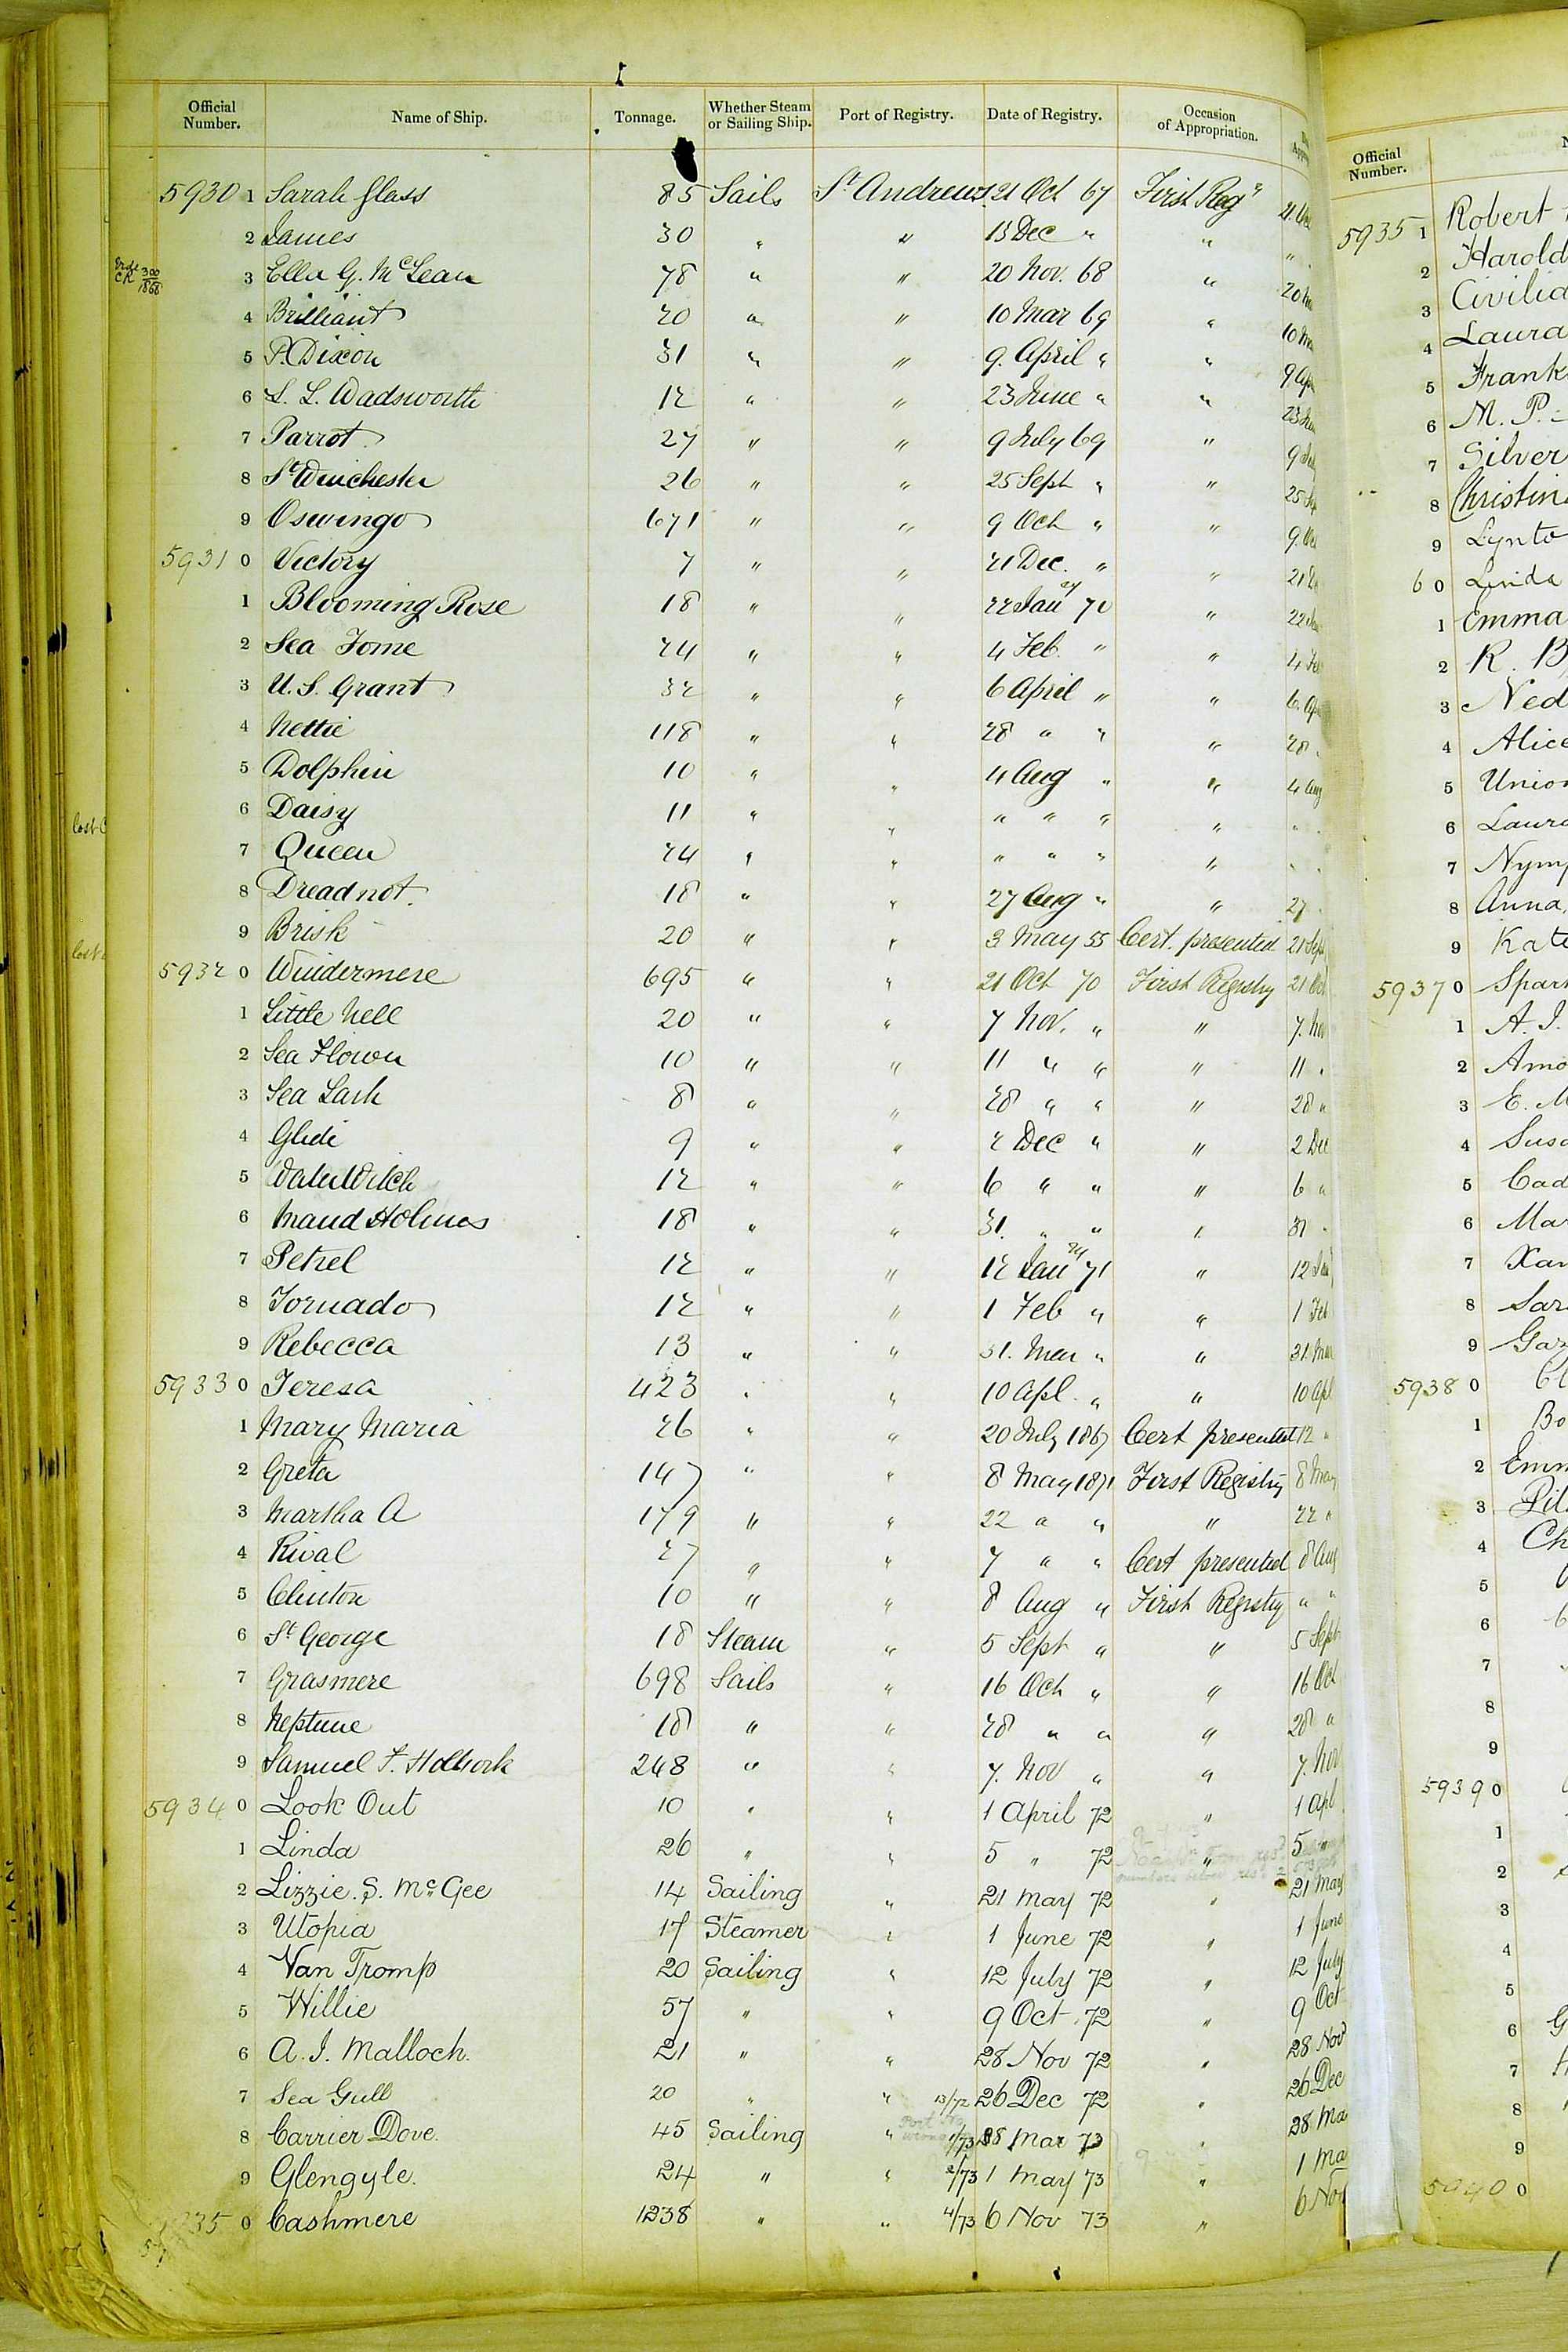 Official Number. Name of Ship. Tonnage. Whether Steam or Sailing Ship. Port of Registry. Date of Registry. Occasion of Appropriation.
5930 1 Sarah Glass 85 Sails St Andrews 21 Oct 67 First Regy
2 James 30 " " 13 Dec " " "
3 Ella G. McLean 78 " " 20 Nov. 68 " 20
4 Brilliant 20 " " 10 Mar 69 " 10
5 P. Dixon 31 " " 9. April " " 9 Apr
6 S. L. Wadsworth 12 " " 23 June " " 23
7 Parrot 27 " " 9 July 69 " 9
8 St Winchester 26 " " 25 Sept " " 25 Sep
9 Oswingo 671 " " 9 Oct " " 9.
5931 0 Victory 7 " " 21 Dec. " " 21
1 Blooming Rose 18 " " 22 Jany 70 " 22
2 Sea Fome 24 " " 4 Feb. " " 4
3 U. S. Grant 32 " " 6 April " " 6.
4 Nettie 118 " " 28 " " " 28
5 Dolphin 10 " " 4 Aug " " 4 Aug
6 Daisy 11 " " " " " "
7 Queen 24 " " " " " "
8 Dreadnot. 18 " " 27 Aug " " 27
9 Brisk 20 " " 3 May 55 Cert. presented 21 Sep
5932 0 Windermere 695 " " 21 Oct 70 First Registry 21 Oct
1 Little Nell 20 " " 7 Nov. " " 7. Nov
2 Sea Flower 10 " " 11 " " " 11 "
3 Sea Lark 8 " " 28 " " " 28 "
4 Glide 9 " " 2 Dec " " 2 Dec
5 WaterWitch 12 " " 6 " " " 6 "
6 Maud Holmes 18 " " 31. " " " 31 "
7 Petrel 12 " " 12 Jany 71 " 12
8 Tornado 12 " " 1 Feb " " 1 Feb
9 Rebecca 13 " " 31. Mar " " 31. Mar
5933 0 Teresa 423 " " 10 Apl. " " 10 Apl
1 Mary Maria 26 " " 20 July 1867 Cert presented 12 "
2 Greta 147 " " 8 May 1871 First Registry 8 May
3 Martha A 179 " " 22 " " " 22 "
4 Rival 27 " " 7 " " Cert presented 8 Aug
5 Clinton 10 " " 8 Aug " First Registry " "
6 St George 18 Steam " 5 Sept " " 5 Sept
7 Grasmere 698 Sails " 16 Oct " " 16 Oct
8 Neptune 18 " " 28 " " " 28 "
9 Samuel F. 248 " " 7. Nov " " 7. Nov
5934 0 Look Out 10 " " 1 April 72 " 1 Apl
1 Linda 26 " " 5 " 72 " 5
2 Lizzie. S. McGee 14 Sailing " 21 May 72 " 21 May
3 Utopia 17 Steamer " 1 June 72 " 1 June
4 Van Tromp 20 Sailing " 12 July 72 " 12 July
5 Willie 57 " " 9 Oct. 72 " 9 Oct
6 A. I. Malloch. 21 " " 28 Nov 72 " 28 Nov
7 Sea Gull 20 " " 13/72 26 Dec 72 " 26 Dec
8 Carrier Dove. 45 Sailing " 1/73 28 Mar 73 " 28 Ma
9 Glengyle. 24 " " 2/73 1 May 73 " 1 Ma
0 Cashmere 1238 " " 4/73 6 Nov 73 " 6 Nov
Official Number.
5935 1 Robert
2 Harold
3 Civilia
4 Laura
5 Frank
6 M. P.
7 Silver
8 Christin
9 Lynto
6 0 Linda
1 Emma
2 R. B
3 Ned
4 Alice
5 Union
6 Laura
7 Nymp
8 Anna
9 Kate
5937 0 Spar
1 A. I.
2 Amo
3 E. M
4 Susa
5 Cad
6 Mar
7 Xan
8 Sar
9 Gaz
5938 0
1 Bo
2 Emm
3 Pil
4 Ch
5
6
7
8
9
5939 0
1
2
3
4
5
6 G
7 H
8
9
5940 0